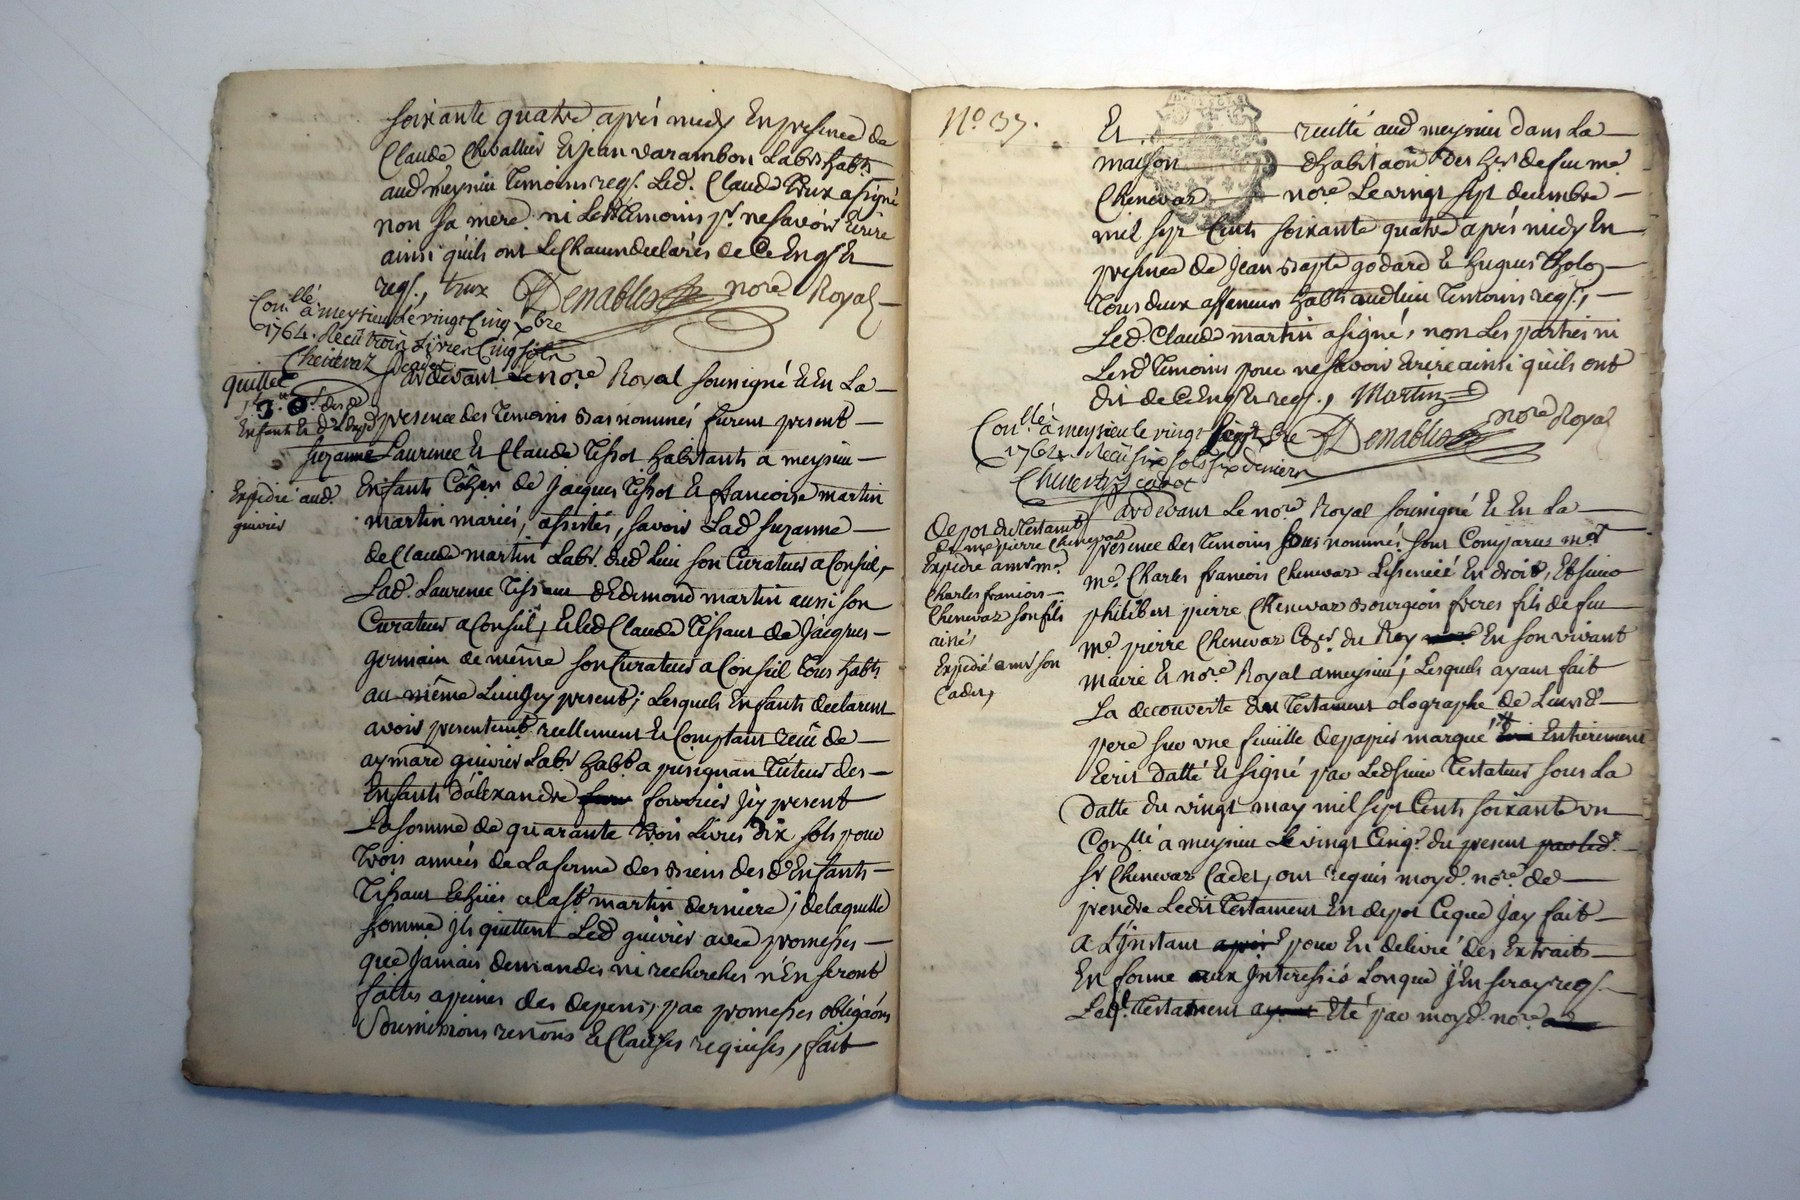 soixante quatre après midy En presence de
Claude Chevallier Et Jean varambon Labrs habts
aud meysieu Temoins reqs. Led. Claude a signé
non sa mere ni Lesd Temoins pr. ne savoir Ecrire
ainsi quils ont Le Chacun declarés de Ce Enqs Et
reqs.
Denablis nore Royal
Con.llé à meysieu Le vingt Cinq xbre
1764. Recû trois Livres Cinq sols
Chenevaz
quittce
Enfants
Expedié aud.
guivier
Par devant Le nore Royal soussigné Et En La
presence des Temoins bas nommés furent present
suzanne Laurence Et Claude Tissot habitants a meysieu
Enfants de Jacques Tissot Et francoise martin
martin mariés, assistés, savoir Lad. suzanne
de Claude martin Labr. dud Lieu son Curateur a Conseil,
Lad. Laurence Tissaut d'Edemond martin aussi son
Curateur a Conseil, Et led Claude Tissaut de Jacques
germain de même son Curateur a Conseil tous habts
au même Lieu Jcy present; Lesquels Enfants declarent
avoir presentemt. reellement Et Comptant receu de
aymard guivier Labr habt a pusignan Tuteur des
Enfants d'alexandre fournier Jcy present
La somme de quarante trois Livres dix sols pour
Trois années de La ferme des Biens des d. Enfants
Tissaut Echües a la st martin derniere; de laquelle
somme jls quittent Led guivier avec promesses
que Jamais demandes ni recherches n'En seront
faites a peines des depens, par promesses obligaons
soumissions renons Et Clauses requises, fait
No. 37.
Et recitté aud meysieu dans La
maison d'habitaon des hers de feu me
Chenevaz nore Le vingt sept decembre
mil sept Cents soixante quatre après midy En
presence de Jean Bapte godard Et hugues
Tous deux habts audlieu Temoins reqs.,
Led. Claude martin a signé, non Les parties ni
Lesd Temoins pour ne savoir Ecrire ainsi quils ont
dit de Ce Enqs Et reqs., Martin
Denablis nore Royal
Con.llé à meysieu Le vingt sept xbre
1764. Recû six sols six deniers
Chenevaz
Depot du Testamt
de me pierre Chenevaz
Expedié a mr me
Charles francois
Chenevaz son fils
ainé,
Expedié a mr son
Cadet,
Par devant Le nore Royal soussigné Et En La
presence des Temoins sous nommés sont Comparus mer
me. Charles francois Chenevaz Lissencié En droit, Et sieur
philibert pierre Chenevaz Bourgeois freres fils de feu
me. pierre Chenevaz Coner. du Roy En son vivant
maire Et nore Royal a meysieu, Lesquels ayant fait
La decouverte du Testament olographe de Leurd
pere sur une feuille de papier marqué Entierement
Ecrit datté Et signé par Led sieur Testateur sous La
datte du vingt may mil sept Cents soixante un
Con.llé a meysieu Le vingt Cinq. du present par led.
sr Chenevaz Cadet, ont requis moyd. nore de
prendre Ledit Testament En depot Ceque Jay fait
a L'jnstant pour En delivré des Extraits
En forme aux Jnteressés Lorsque J'En seray reqs.
Led. Testament Eté par moyd. nore